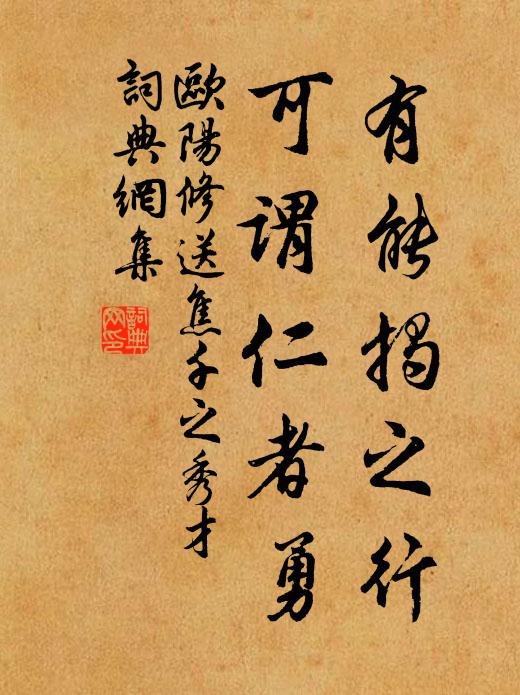 有能揭之行
可謂仁者勇
歐陽修送焦千之秀才
詞典網集
詞典網印